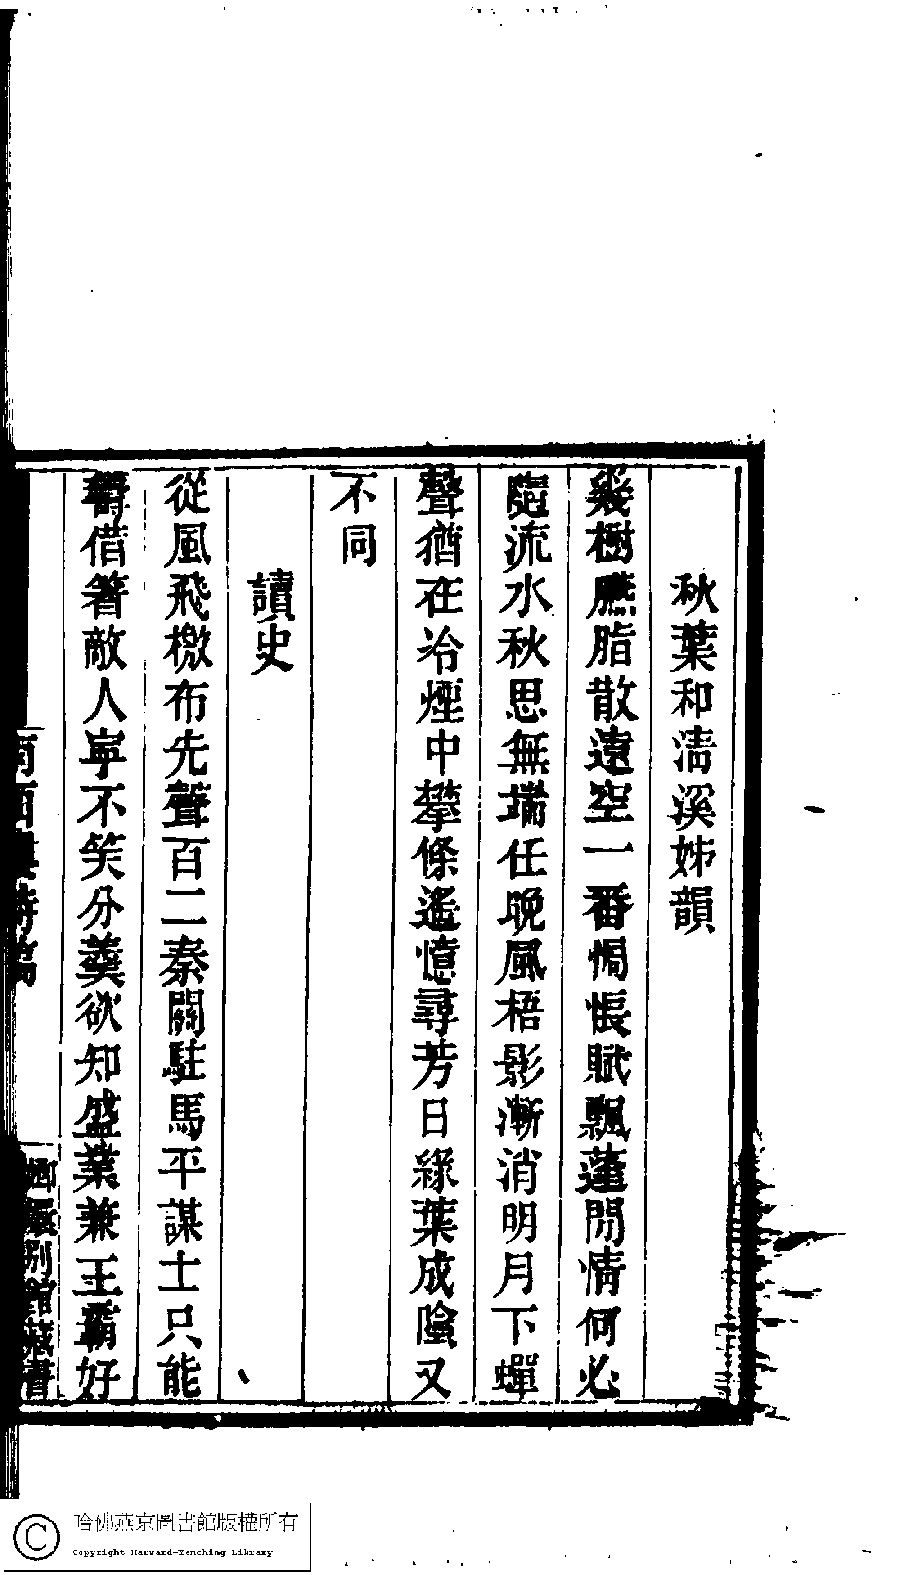 秋葉和淸溪姊韻
幾樹臙脂散遠空一番惆悵賦飄蓬閒情何必
隨流水秋思無端任晚風梧影漸消明月下蟬
聲猶在冷煙中攀條遙憶尋芳日綠葉成陰又
不同
讀史
從風飛檄布先聲百二秦關駐馬平謀士只能
籌借箸敵人寧不笑分羹欲知盛業兼王霸好
哈佛燕京圖書館版權所有
Copyright Harvard-Yenching Library